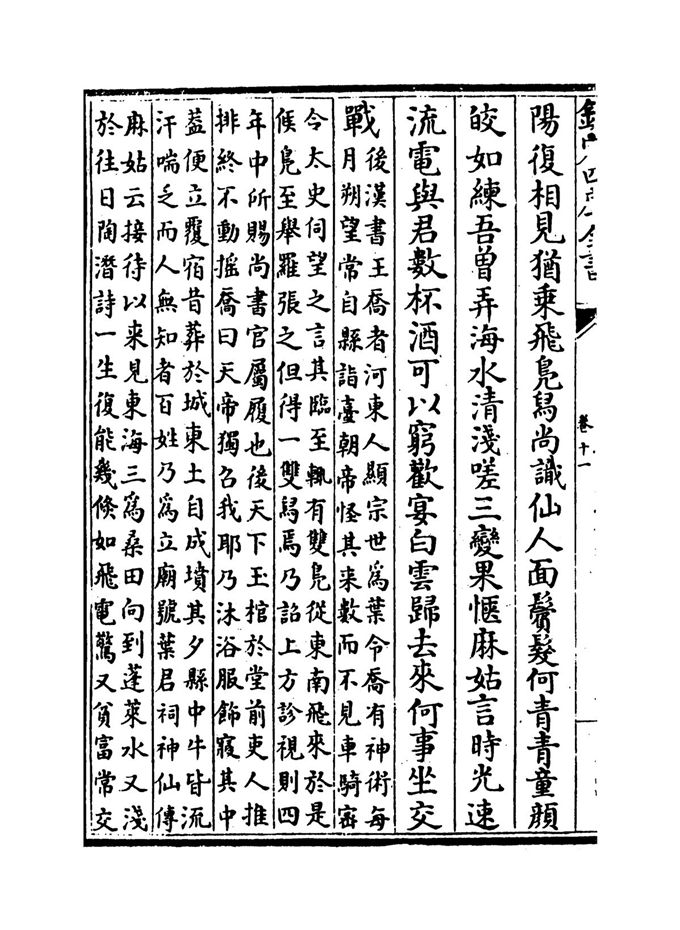 欽定四庫全書
卷十一
陽復相見猶乗飛鳧舄尚識仙人面鬢髮何青青童顔
皎如練吾曽弄海水清淺嗟三變果愜麻姑言時光速
流電與君數杯酒可以窮歡宴白雲歸去來何事坐交
戰
後漢書王喬者河東人顯宗世為葉令喬有神術每
月朔望常自縣詣臺朝帝怪其来數而不見車騎宻
令太史伺望之言其臨至輒有雙鳧從東南飛來於是
候鳧至舉羅張之但得一雙舄焉乃詔上方診視則四
年中所賜尚書官屬履也後天下玉棺於堂前吏人推
排終不動揺喬曰天帝獨召我耶乃沐浴服飾寢其中
葢便立覆宿昔葬於城東土自成墳其夕縣中牛皆流
汗喘乏而人無知者百姓乃為立廟號葉君祠神仙傳
麻姑云接待以来見東海三為桑田向到蓬萊水又淺
於往日陶潛詩一生復能幾倐如飛電驚又貧富常交